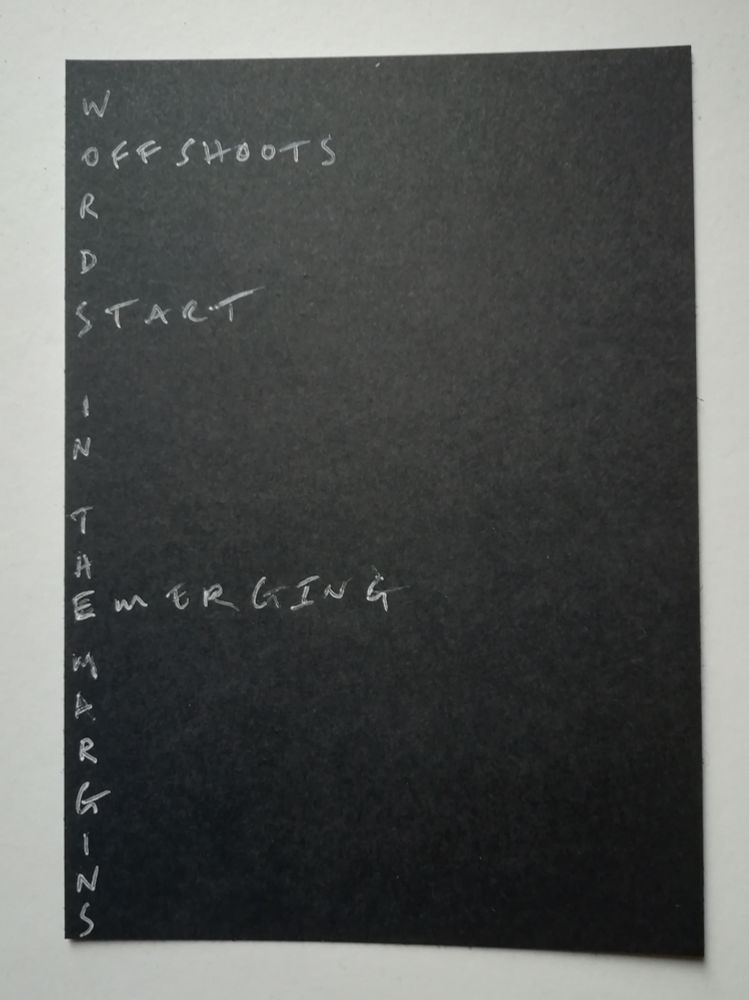 W
OFFSHOOTS
R
D
START
I
N
T
H
EMERGING
M
A
R
G
I
N
S